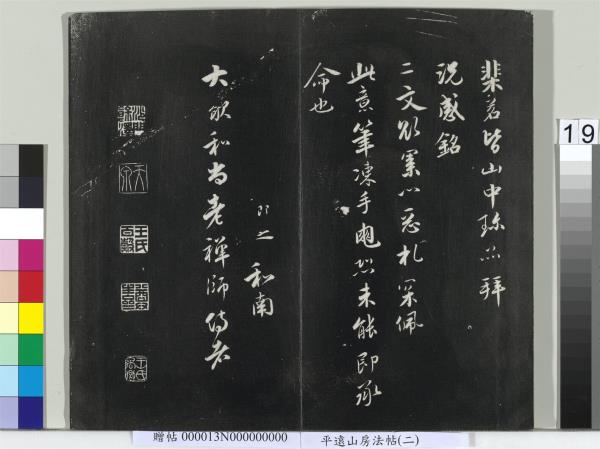 棐茗皆山中珍品拜
貺感銘
二文欲累以惡札深佩
此意筆凍手龜恐未能即承
命也
即之 和南
大歇和尚老禪師侍者
19
贈帖 000013N000000000
平遠山房法帖(二)